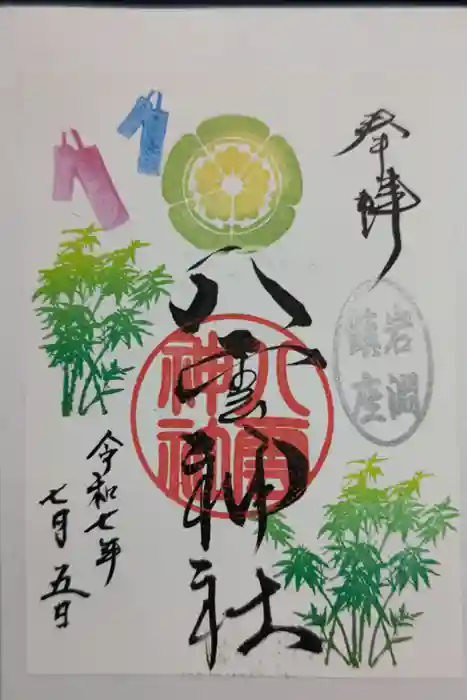 奉拝
岩淵
鎮座
八雲神社
八雲
神社
令和七年
七月五日